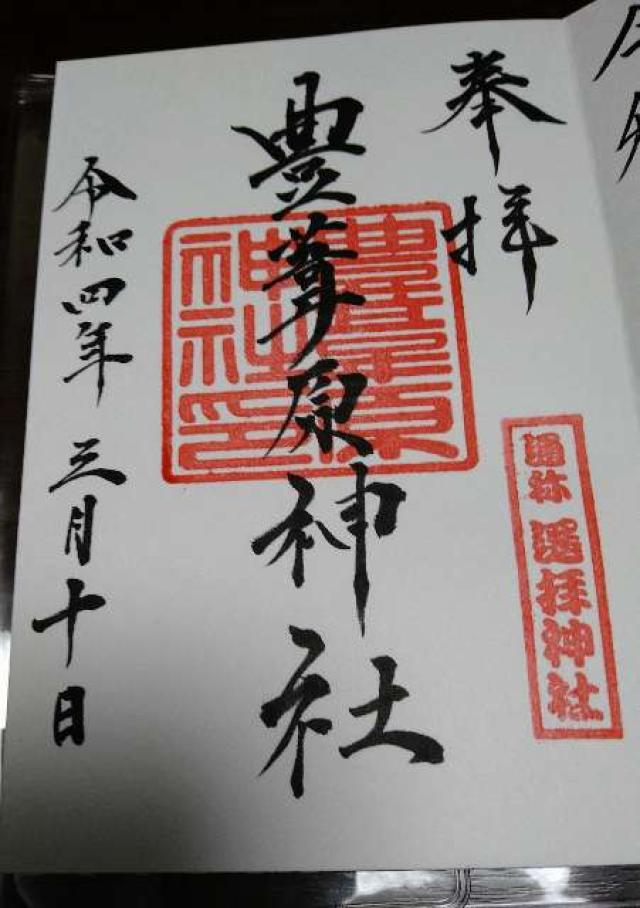 奉拝
通称 遥拝神社
豊葦原神社
豊葦原神社印
令和四年三月十日